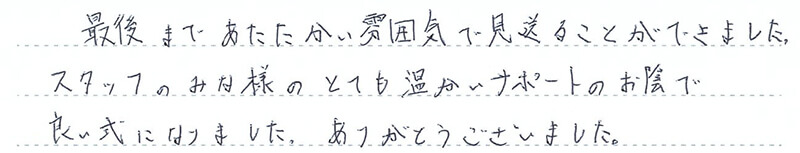 最後まであたたかい雰囲気で見送ることができました。
スタッフのみな様のとても温かいサポートのお陰で
良い式になりました。ありがとうございました。